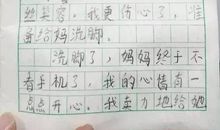 丝笑容。我更伤心了，准
备给妈洗脚。
洗脚了，妈妈终于不
看手机了，我的心替有一
点点开心。我卖力地给她